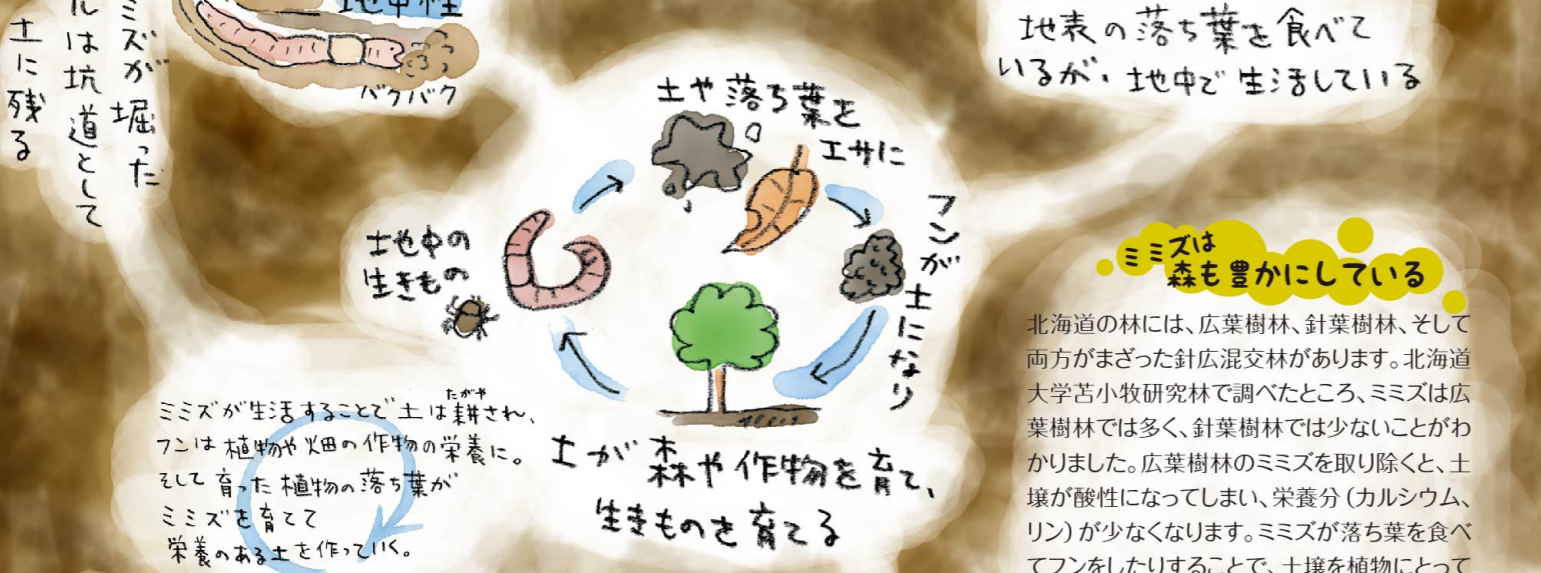 ミミズが堀った
ルは坑道として
土に残る
地中性
パクパク
地表の落ち葉を食べて
いるが、地中で生活している
土や落ち葉を
エサに
フンが土になり
土が森や作物を育て、
生きものを育てる
土地中の
生きもの
ミミズが生活することで土は耕され、
たがや
フンは植物や畑の作物の栄養に。
そして育った植物の落ち葉が
ミミズを育てて
栄養のある土を作っていく。
ミミズは
森も豊かにしている
北海道の林には、広葉樹林、針葉樹林、そして
両方がまざった針広混交林があります。北海道
大学苫小牧研究林で調べたところ、ミミズは広
葉樹林では多く、針葉樹林では少ないことがわ
かりました。広葉樹林のミミズを取り除くと、土
壌が酸性になってしまい、栄養分（カルシウム、
リン）が少なくなります。ミミズが落ち葉を食べ
てフンをしたりすることで、土壌を植物にとって